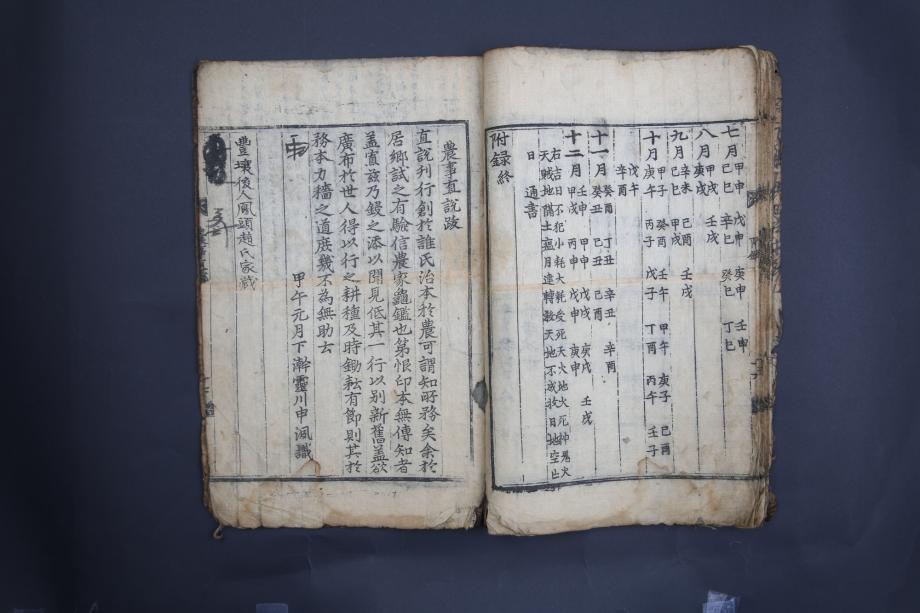 七月 甲申 戊申 庚申 壬申
己巳 辛巳 癸巳 丁巳
八月 甲戌 壬戌
庚戌
九月 辛未 己酉
甲戌
十月 甲子 癸酉 壬午 甲午 庚子 己酉
庚午 丙子 戊子 丁酉 丙午 壬子
戊午
辛酉
十一月 癸酉 丁丑 辛丑 辛酉
癸丑 己丑 己酉
十二月 壬申 甲申 庚戌 壬戌
甲戌 丙申 戊申 庚申
右吉日不犯小耗大耗受死天火地火死神鬼火
天賊地隔土瘟月建轉殺天地不成收日地空亡
日 通書
附録終
農事直說跋
直說刊行創於誰氏治本於農可謂知所務矣余於
居鄉試之有驗信農家龜鑑也第恨印本無傳知者
盖寡兹乃鋟之添以聞見低其一行以別新舊盖欲
廣布於世人得以行之耕種及時鋤耘有節則其於
務本力穡之道庶幾不為無助云
甲午元月下澣靈川申洬識
豊壤後人鳳頭趙氏家藏